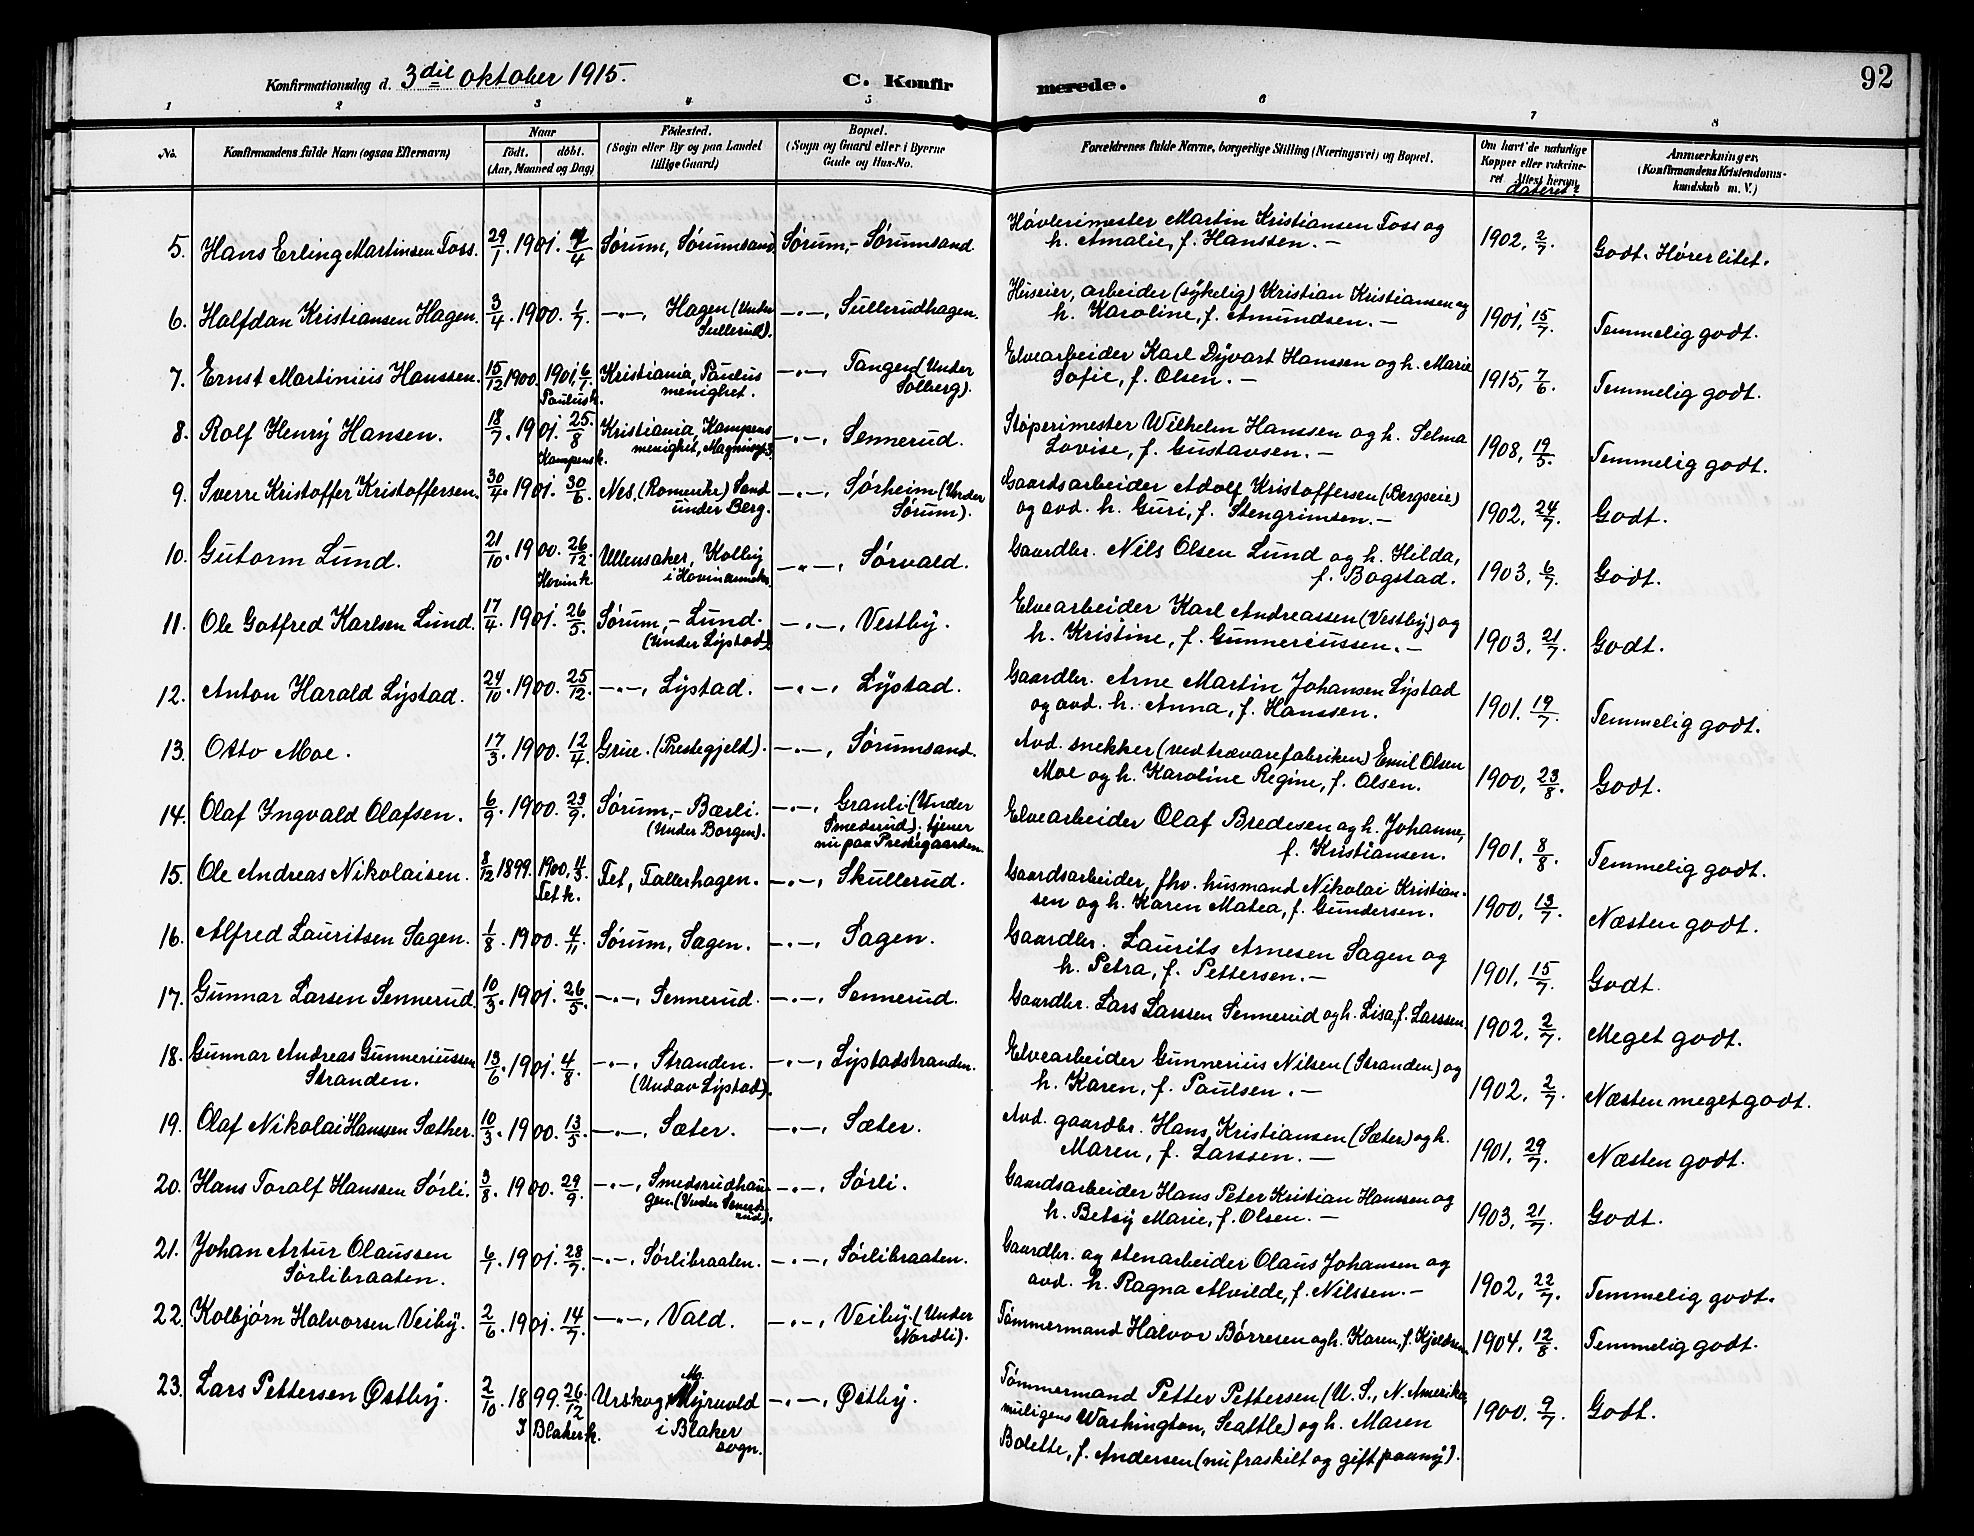 Konfirmationsdag d. 3die oktober 1915.
C. Konfirmerede.
92
1 2 3 4 5 6 7 8
No.
Konfirmandens fulde Navn (ogsaa Efternavn)
Naar
født. døbt.
(Aar, Maaned og Dag)
Fødested.
(Sogn eller By og paa Landet
tillige Gaard)
Bopæl.
(Sogn og Gaard eller i Byerne
Gade og Hus-No.
Forældrenes fulde Navne, borgerlige Stilling (Næringsvei) og Bopæl.
Om havt de naturlige
Kopper eller vakcine-
ret. Attest herom
dateret?
Anmærkninger.
(Konfirmandens Kristendoms-
kundskab m. V.)
5. Hans Erling Martinsen Foss. 29/1. 1901. 4/4 Sørum, Sørumsand. Sørum,- Sørumsand. Høvlerimester Martin Kristiansen Foss og
h. Amalie, f. Hanssen. - 1902, 2/7. Godt. Hører litet.
6. Halfdan Kristiansen Hagen. 3/4. 1900. 1/7. -"-, Hagen (Under
Sullerud). -"-, Sullerudhagen. Huseier, arbeider (sykelig) Kristian Kristiansen og
h. Karoline, f. Amundsen. - 1901, 15/7. Temmelig godt.
7. Ernst Martinius Hanssen. 15/12 1900. 1901, 6/1.
Paulus k. Kristiania, Paulus
menighet. -"-, Tangen (Under
Solberg). Elvearbeider Karl Dyvart Hanssen og h. Marie
Sofie, f. Olsen. - 1915, 7/6. Temmelig godt.
8. Rolf Henry Hansen. 18/7. 1901. 25/8
Kampens k. Kristiania, Kampens
menighet, -"-, Sennerud. Støperimester Wilhelm Hanssen og h. Selma
Lovise, f. Gustavsen. - 1908, 19/5. Temmelig godt.
9. Sverre Kristoffer Kristoffersen. 30/4. 1901. 30/6 Nes, (Romerike) Sand
under Berg. -"-, Sørheim (Under
Sørum). Gaardsarbeider Adolf Kristoffersen (Bergseie)
og avd. h. Guri, f. Stengrimsen. - 1902, 24/7. Godt.
10. Gutorm Lund. 21/10. 1900. 26/12.
Hovin k. Ullensaker, Kolby
i Hovin -"-, Sørvald. Gaardbr. Nils Olsen Lund og h. Hilda,
f. Bogstad. 1903, 6/7. Godt.
11. Ole Gotfred Karlsen Lund. 17/4. 1901. 26/5. Sørum,- Lund.
(Under Lystad) -"-, Vestby. Elvearbeider Karl Andreassen (Vestby) og
h. Kristine, f. Gunneriussen. - 1903, 21/7. Godt.
12. Anton Harald Lystad. 24/10. 1900. 25/12. -"-, Lystad. -"-, Lystad. Gaardbr. Arne Martin Johansen Lystad
og avd. h. Anna, f. Hanssen. 1901. 19/7. Temmelig godt.
13. Otto Moe. 17/3. 1900. 12/4 Grue. (Prestegjeld). -"-, Sørumsand. Avd. snekker (ved trævarefabriken) Emil Olsen
Moe og h. Karoline Regine, f. Olsen. 1900, 23/8. Godt.
14. Olaf Ingvald Olafsen. 6/9. 1900. 23/9. Sørum,- Bærli.
(Under Borgen). -"-, Granli. (Under
Smedsrud); tjener
nu paa Prestegaarden. Elvearbeider Olaf Bredesen og h. Johanne,
f. Kristiansen. 1901. 8/8. Temmelig godt.
15. Ole Andreas Nikolaisen. 8/12 1899. 1900, 4/3.
Fet k. Fet, Fallerhagen. -"-, Skullerud. Gaardsarbeider, fhv. husmand Nikolai Kristian-
sen og h. Karen Matea, f. Gundersen. 1900, 13/7. Næsten godt.
16. Alfred Lauritsen Sagen. 1/8. 1900. 4/11 Sørum, Sagen. -"-, Sagen. Gaardbr. Laurits Arnesen Sagen og
h. Petra, f. Pettersen. - 1901. 15/7. Godt.
17. Gunnar Larsen Sennerud. 10/3. 1901. 26/5. -"-, Sennerud. -"-, Sennerud. Gaardbr. Lars Larssen Sennerud og h. Lisa, f. Larssen. 1902. 2/7. Meget godt.
18. Gunnar Andreas Gunneriussen
Stranden. 13/6. 1901. 4/8 -"-, Stranden.
(Undav Lystad). -"-, Lystadstranden. Elvearbeider Gunnerius Nilsen (Stranden) og
h. Karen, f. Paulsen. - 1902. 2/7. Næsten meget godt.
19. Olaf Nikolai Hanssen Sæther. 10/3. 1900. 13/5 -"-, Sæter. -"-, Sæter. Avd. gaardbr. Hans Kristiansen (Sæter) og h.
Maren, f. Larssen. - 1901. 29/7. Næsten godt.
20. Hans Toralf Hanssen Sørli. 3/8. 1900. 29/9. -"-, Smedsrudhau-
gen. (Under Smeds-
rud). -"-, Sørli. Gaardsarbeider Hans Peter Kristian Hanssen og
h. Betsy Marie, f. Olsen. - 1903, 21/7. Godt.
21. Johan Artur Olaussen
Sørlibraaten. 6/1. 1901. 28/7. -"-, Sørlibraaten. -"-, Sørlibraaten. Gaardbr. og stenarbeider Olaus Johansen og
avd. h. Ragna Alvilde, f. Nilssen. - 1902, 22/7. Temmelig godt.
22. Kolbjørn Halvorsen Veiby. 2/6. 1901. 14/7. -"-, Vald. -"-, Veiby. (Under
Nordli). Tømmermand Halvor Børresen og h. Karen, f. Kjeldsen. 1904. 12/8. Temmelig godt.
23. Lars Pettersen Østby. 2/10. 1899. 26/12
I Blaker k. Urskog, Myrvold
i Blaker
sogn. -"-, Østby. Tømmermand Petter Pettersen (U. S., N. Amerika,
muligens Washington, Seattle) og h. Maren
Bolette, f. Andersen (nu fraskilt og gift paany). 1900. 9/7. Godt.